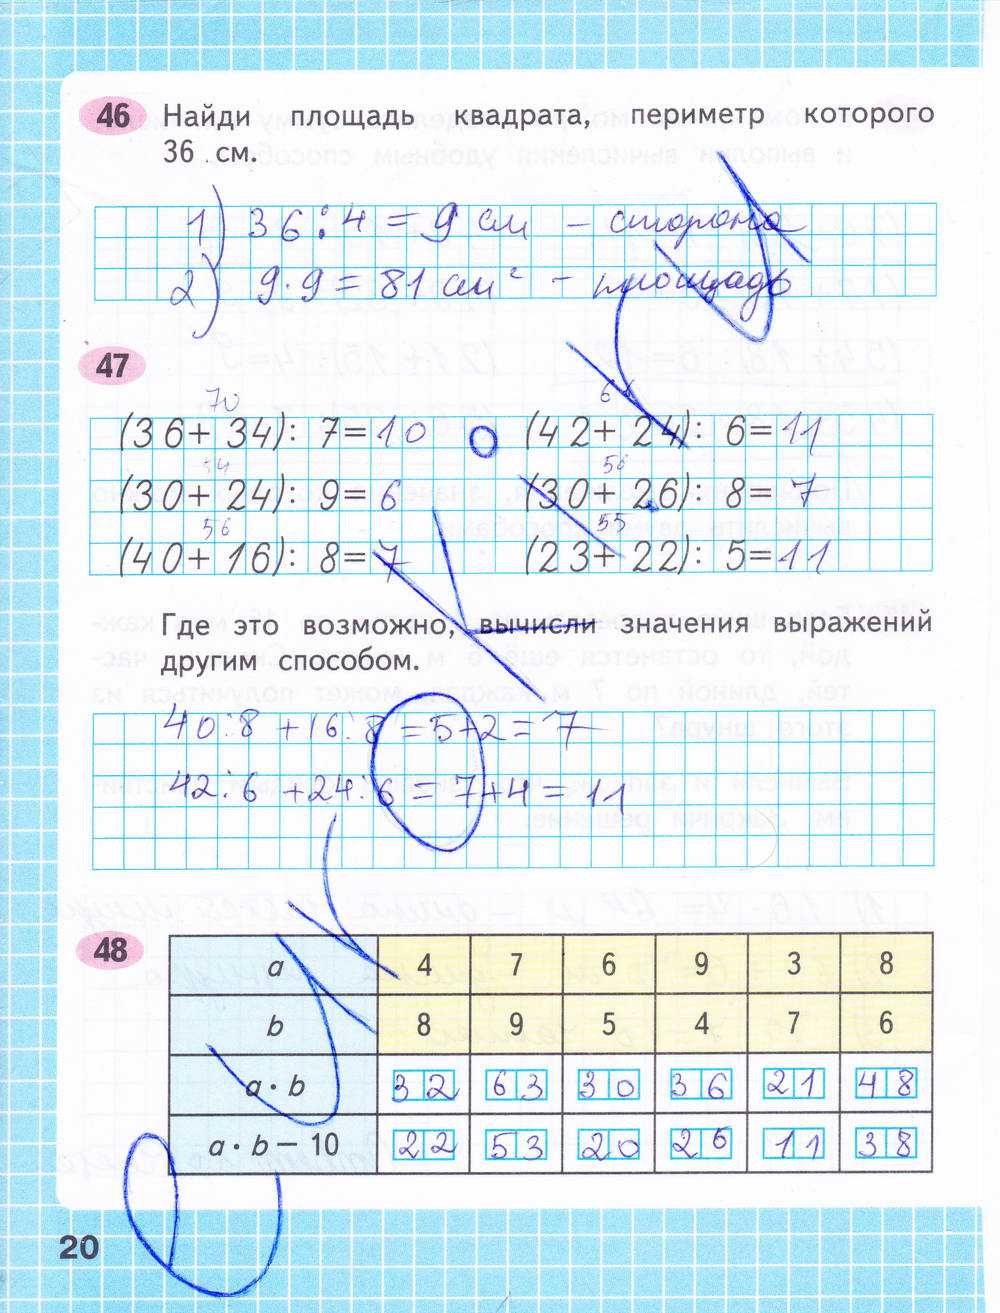 46 Найди площадь квадрата, периметр которого
36 см.
1) 36 : 4 = 9 см – сторона
2) 9 · 9 = 81 см² – площадь
47
70
(36+ 34): 7=10
(42+ 24): 6=11
54
56
(30+ 24): 9= 6
(30+ 26): 8= 7
56
55
(40+ 16): 8=7
(23+ 22): 5=11
Где это возможно, вычисли значения выражений
другим способом.
40:8 +16:8 =5+2=7
42:6 +24:6 = 7+4 = 11
48
a 4 7 6 9 3 8
b 8 9 5 4 7 6
a · b 32 63 30 36 21 48
a · b − 10 22 53 20 26 11 38
20